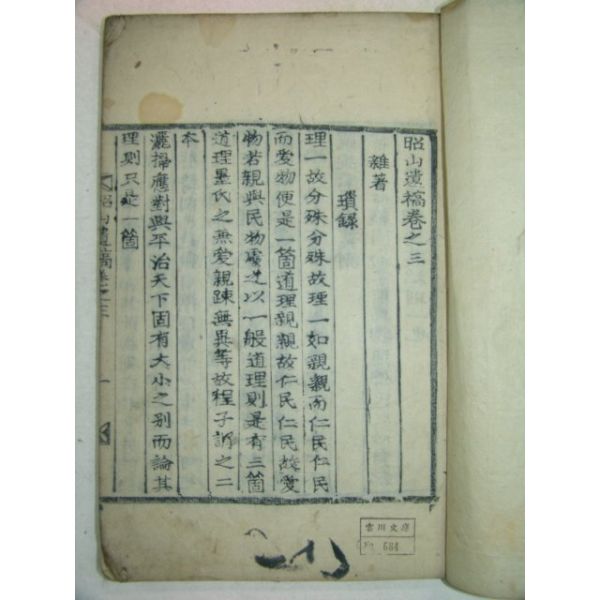 昭山遺稿卷之三
雜著
瑣錄
理一故分殊分殊故理一如親親而仁民仁民
而愛物便是一箇道理親親故仁民仁民故愛
物若親與民物處之以一般道理則是有二箇
道理墨氏之無愛親踈無異等故程子斥之二
本
灑掃應對與平治天下固有大小之別而論其
理則只是一箇
昭山遺稿卷之三
一
雲川文庫
No. 684